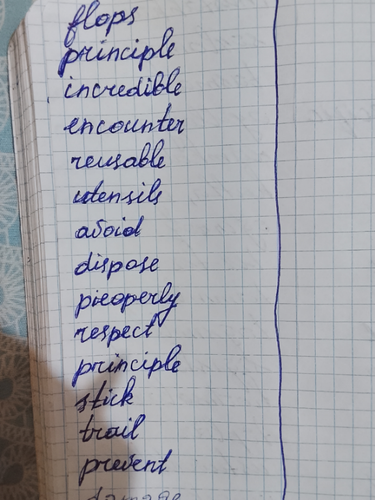 flops
principle
incredible
encounter
reusable
utensils
avoid
dispose
pieoperly
respect
principle
stick
trail
prevent
damage